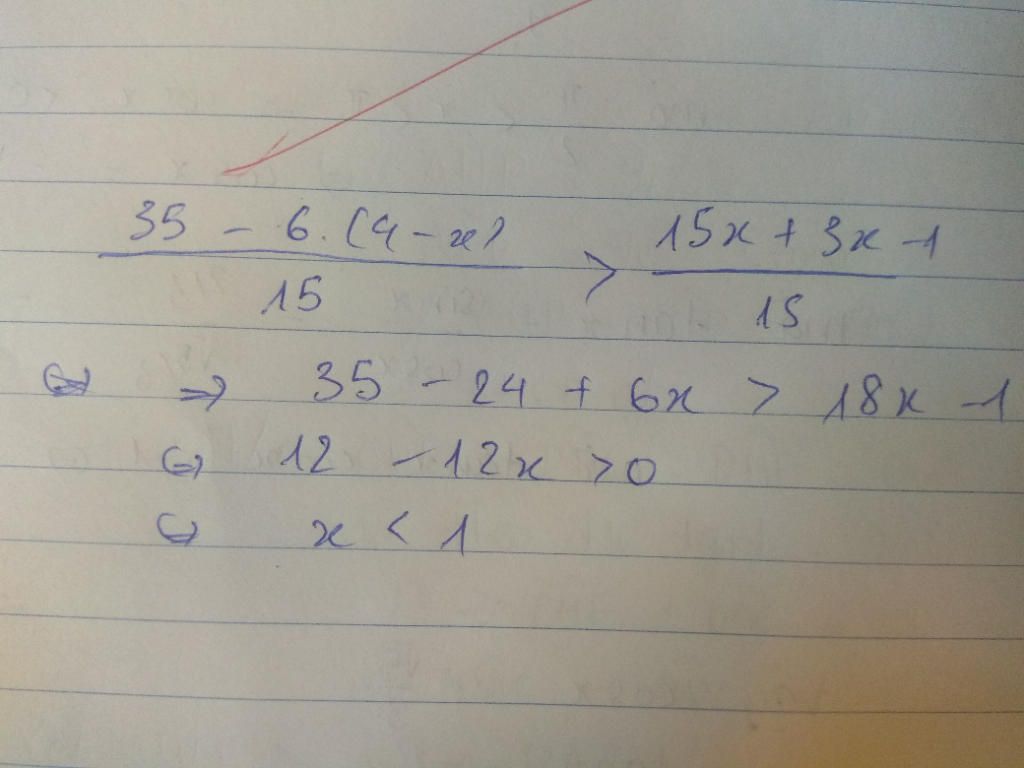 35 - 6.(4-x) / 15 > 15x + 3x - 1 / 15
⇔ ⇒ 35 - 24 + 6x > 18x - 1
⇔ 12 - 12x > 0
⇔ x < 1